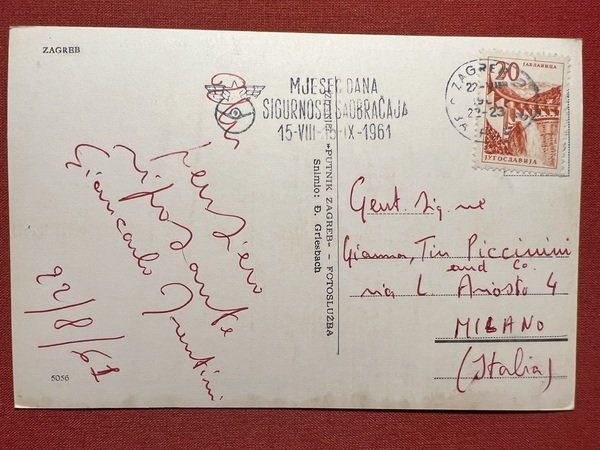 ZAGREB
MJESEC DANA
SIGURNOSTI SAOBRAĆAJA
15-VIII-15-IX-1961
ZAGREB
22-23
20
ЈАБЛАНИЦА
ЈУГОСЛАВИЈА
»PUTNIK ZAGREB« – FOTOSLUŽBA
Snimio: Đ. Griesbach
pensiero
riposante
Giancarlo Trentini
22/8/61
Gent. Sig.ne
Gianna, Tin Piccinini
and Co.
via L Ariosto 4
MILANO
(Italia)
5056